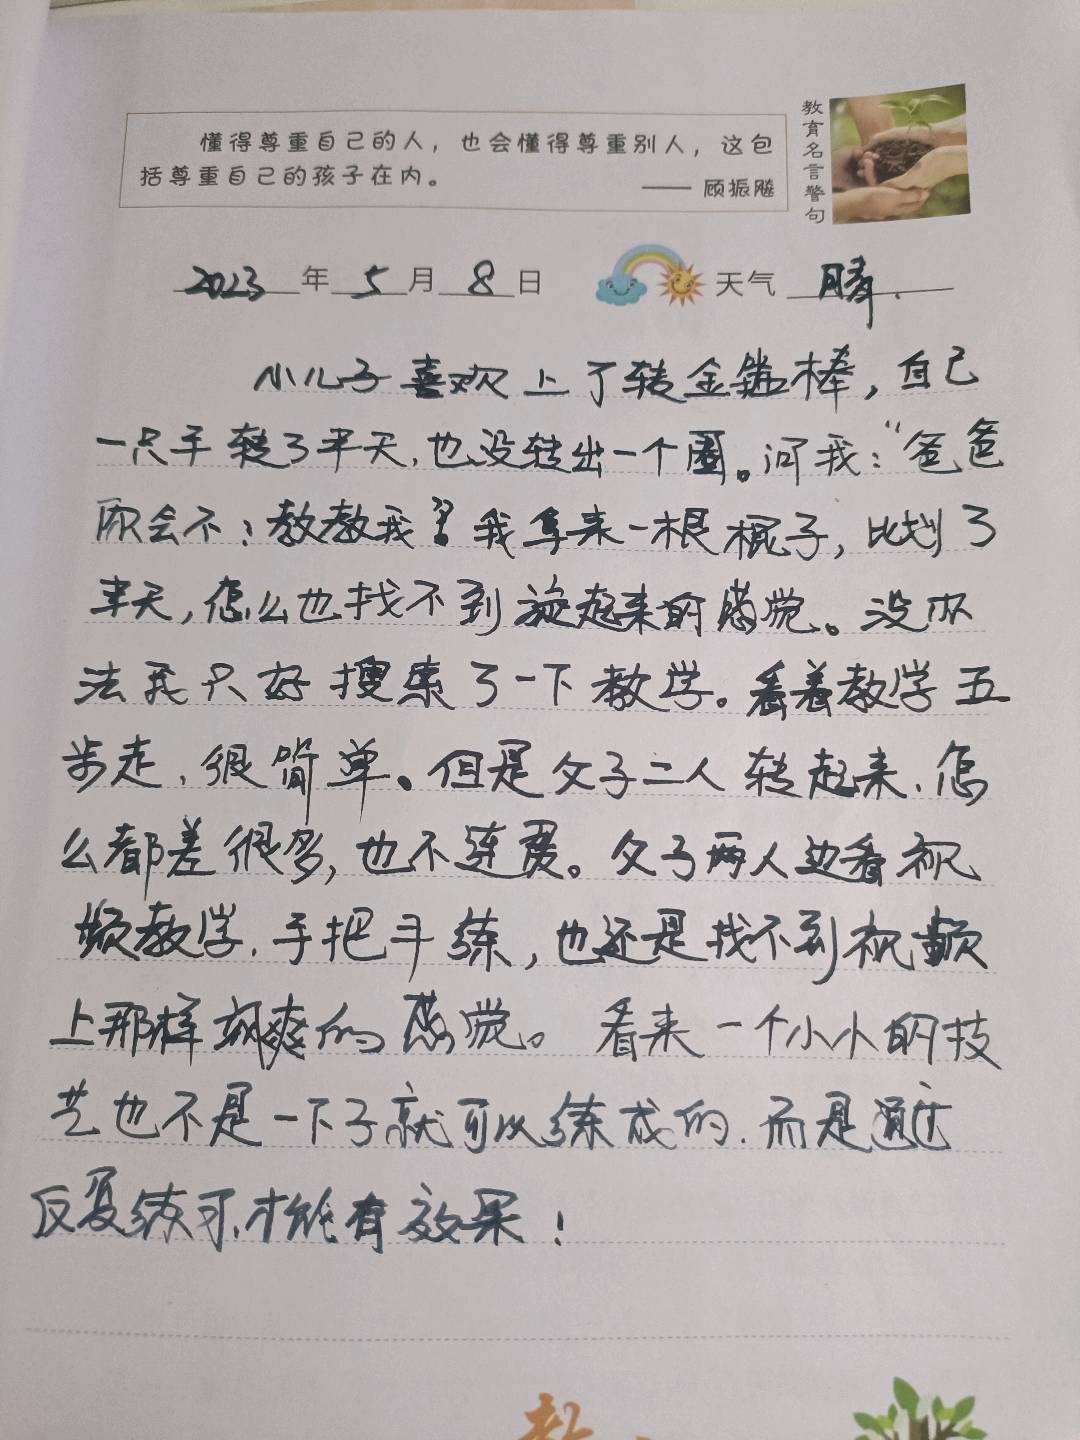 懂得尊重自己的人，也会懂得尊重别人，这包
括尊重自己的孩子在内。
—— 顾振飚
教育名言警句
2023年5月8日 天气 晴.
小儿子喜欢上了转金箍棒，自己
一只手转了半天，也没转出一个圈。问我："爸爸
你会不？教教我？我拿来一根棍子，比划了
半天，怎么也找不到旋起来的感觉。没办
法我只好搜索了一下教学。看着教学五
步走，很简单。但是父子二人转起来，怎
么都差很多，也不连贯。父子两人边看视
频教学，手把手练，也还是找不到视频
上那样飒爽的感觉。看来一个小小的技
艺也不是一下子就可以练成的，而是通过
反复练习，才能有效果！